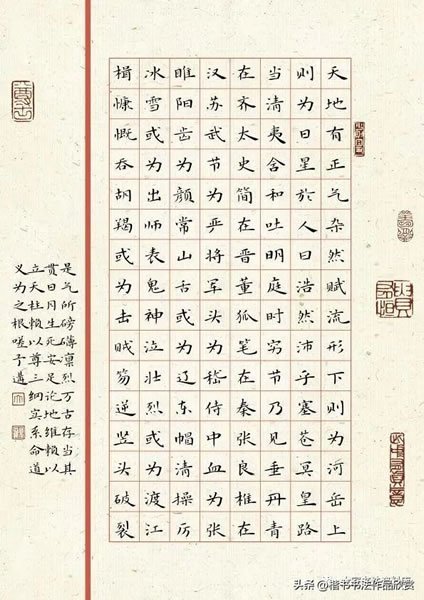 天地有正气杂然赋流形下则为河岳上
则为日星於人曰浩然沛乎塞苍冥皇路
当清夷含和吐明庭时穷节乃见垂丹青
在齐太史简在晋董狐笔在秦张良椎在
汉苏武节为严将军头为嵇侍中血为张
睢阳齿为颜常山舌或为辽东帽清操厉
冰雪或为出师表鬼神泣壮烈或为渡江
楫慷慨吞胡羯或为击贼笏逆竖头破裂
是气所磅礴凛烈万古存当其
贯日月生死安足论地维赖以
立天柱赖以尊三纲实系命道
义为之根嗟予遘
头条@楷书书法作品欣赏